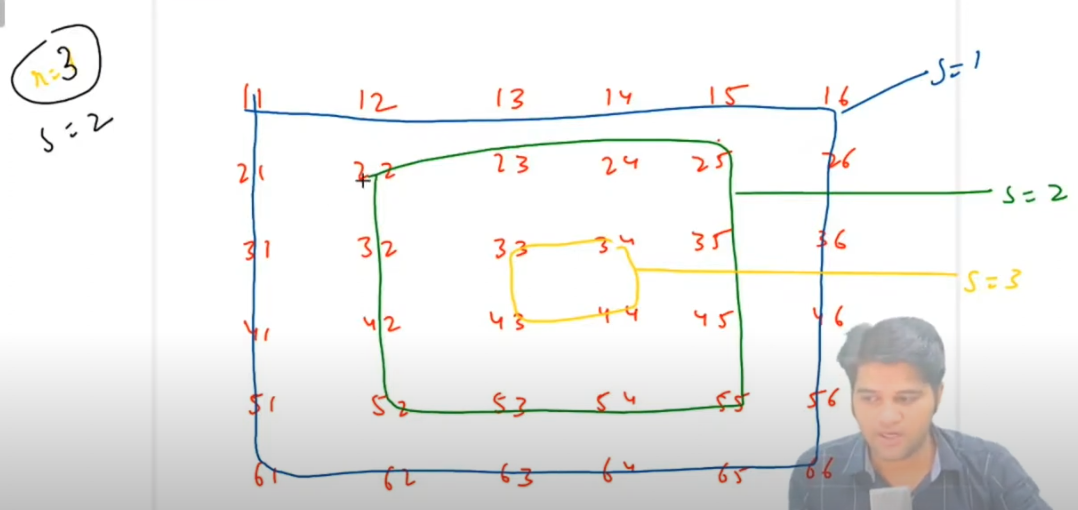 r=3
s=2
s=1
11 12 13 14 15 16
21 22 23 24 25 26
s=2
31 32 33 34 35 36
s=3
41 42 43 44 45 46
51 52 53 54 55 56
61 62 63 64 65 66